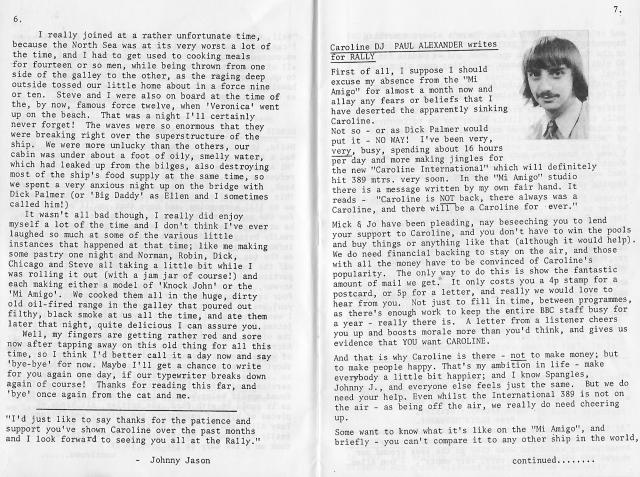 6.
I really joined at a rather unfortunate time,
because the North Sea was at its very worst a lot of
the time, and I had to get used to cooking meals
for fourteen or so men, while being thrown from one
side of the galley to the other, as the raging deep
outside tossed our little home about in a force nine
or ten.  Steve and I were also on board at the time of
the, by now, famous force twelve, when 'Veronica' went
up on the beach.  That was a night I'll certainly
never forget!  The waves were so enormous that they
were breaking right over the superstructure of the
ship.  We were more unlucky than the others, our
cabin was under about a foot of oily, smelly water,
which had leaked up from the bilges, also destroying
most of the ship's food supply at the same time, so
we spent a very anxious night up on the bridge with
Dick Palmer (or 'Big Daddy' as Ellen and I sometimes
called him!)
It wasn't all bad though, I really did enjoy
myself a lot of the time and I don't think I've ever
laughed so much at some of the various little
instances that happened at that time; like me making
some pastry one night and Norman, Robin, Dick,
Chicago and Steve all taking a little bit while I
was rolling it out (with a jam jar of course!) and
each making either a model of 'Knock John' or the
'Mi Amigo'.  We cooked them all in the huge, dirty
old oil-fired range in the galley that poured out
filthy, black smoke at us all the time, and ate them
later that night, quite delicious I can assure you.
Well, my fingers are getting rather red and sore
now after tapping away on this old thing for all this
time, so I think I'd better call it a day now and say
'bye-bye' for now. Maybe I'll get a chance to write
for you again one day, if our typewriter breaks down
again of course!  Thanks for reading this far, and
'bye' once again from the cat and me.
"I'd just like to say thanks for the patience and
support you've shown Caroline over the past months
and I look forward to seeing you all at the Rally."
- Johnny Jason
7.
Caroline DJ  PAUL ALEXANDER writes
for RALLY
First of all, I suppose I should
excuse my absence from the "Mi
Amigo" for almost a month now and
allay any fears or beliefs that I
have deserted the apparently sinking
Caroline.
Not so - or as Dick Palmer would
put it - NO WAY!  I've been very,
very, busy, spending about 16 hours
per day and more making jingles for
the new "Caroline International" which will definitely
hit 389 mtrs. very soon.  In the "Mi Amigo" studio
there is a message written by my own fair hand. It
reads -  "Caroline is NOT back, there always was a
Caroline, and there will be a Caroline for  ever."
Mick & Jo have been pleading, nay beseeching you to lend
your support to Caroline, and you don't have to win the pools
and buy things or anything like that (although it would help).
We do need financial backing to stay on the air, and those
with all the money have to be convinced of Caroline's
popularity.  The only way to do this is show the fantastic
amount of mail we get.  It only costs you a 4p stamp for a
postcard, or 5p for a letter, and really we would love to
hear from you.  Not just to fill in time, between programmes,
as there's enough work to keep the entire BBC staff busy for
a year - really there is.  A letter from a listener cheers
you up and boosts morale more than you'd think, and gives us
evidence that YOU want CAROLINE.
And that is why Caroline is there - not to make money; but
to make people happy.  That's my ambition in life - make
everybody a little bit happier; and I know Spangles,
Johnny J., and everyone else feels just the same.  But we do
need your help. Even whilst the International 389 is not on
the air - as being off the air, we really do need cheering
up.
Some want to know what it's like on the "Mi Amigo", and
briefly - you can't compare it to any other ship in the world,
continued........